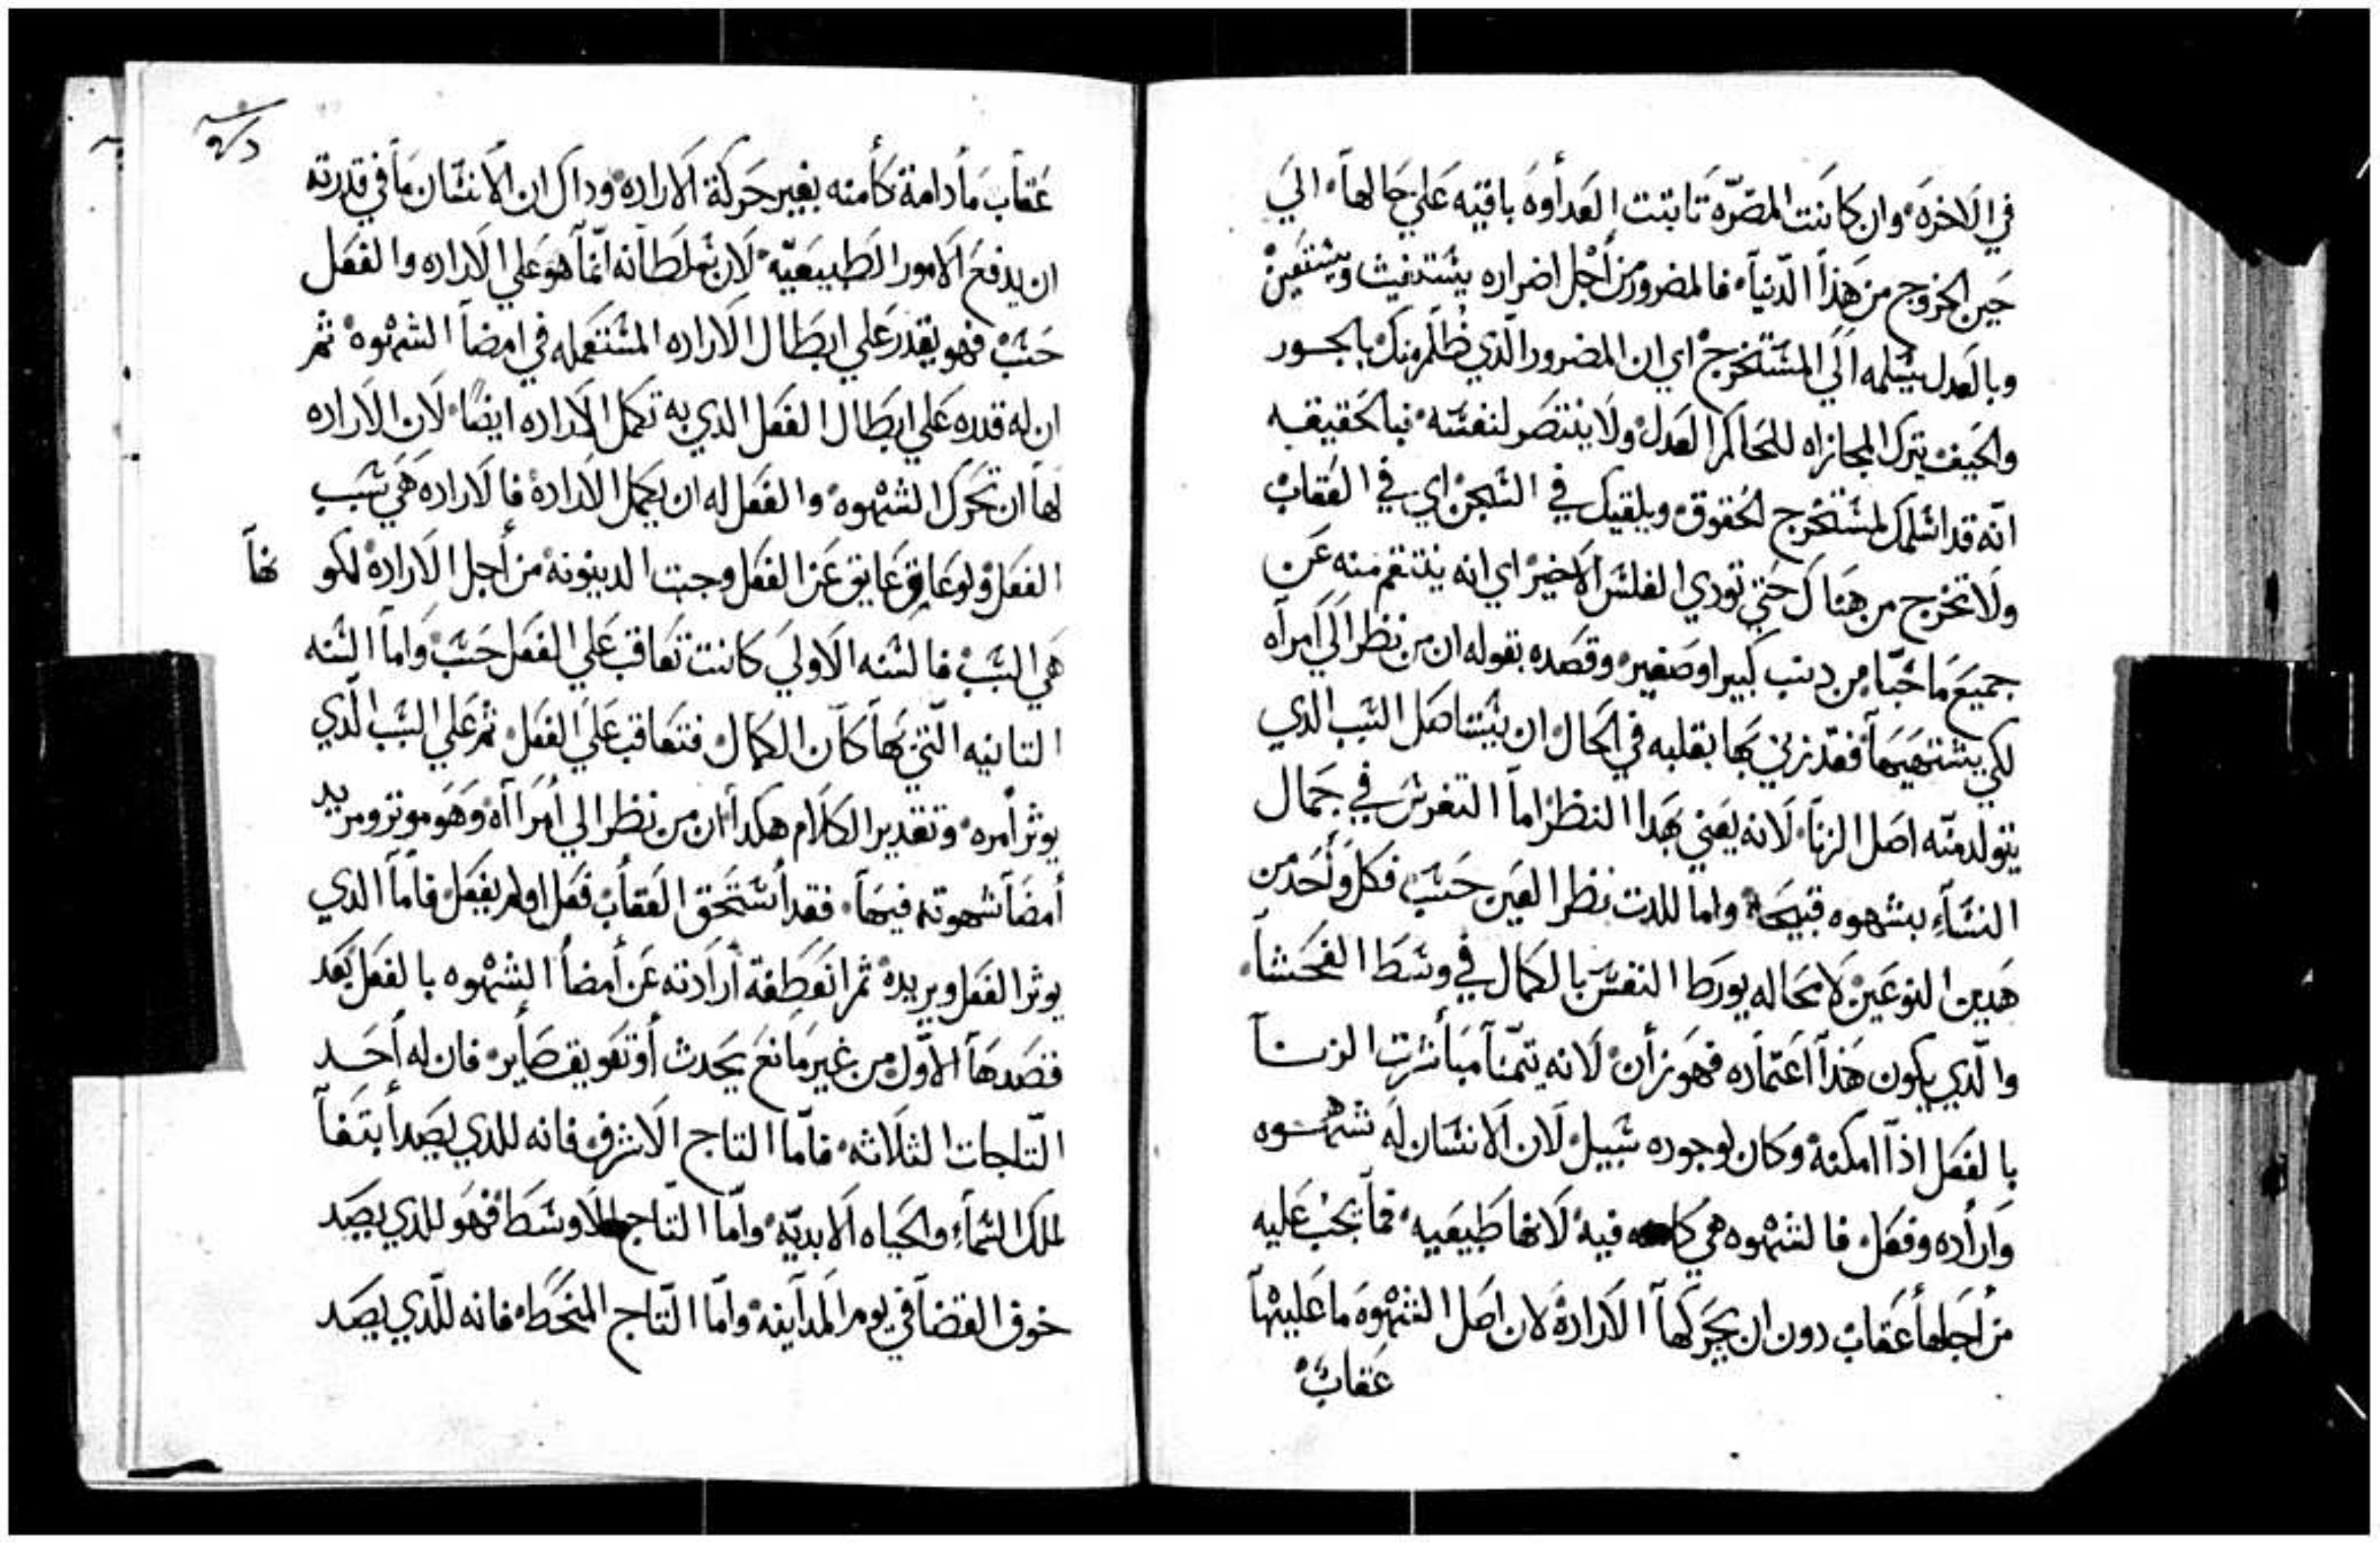 في الاخره وان كانت المضره تابتت العداوه باقيه علي حالها الي
حين الخروج من هذا الدنيا فالمضرور من اجل اضراره يستغيث ويستعين
وبالعدل يسلمه الي المستخرج اي ان المضرور الذي ظلم منك بالجور
والحيف يترك المجازاه للحاكم العدل ولا ينتصر لنفسه فبالحقيقه
انه قد اسلمك لمستخرج الحقوق ويلقيك في السجن اي في العقاب
ولا تخرج من هناك حتي توري الفلس الاخير اي انه ينتقم منه عن
جميع ما خبا من دنب كبير او صغير وقصده بقوله ان من نظر الي امراه
لكي يشتهيها فقد زني بها بقلبه في الحال ان يستاصل السبب الدي
يتولد منه اصل الزنا لانه يعني بهدا النظر اما التفرس في جمال
النساء بشهوه قبيحه واما للدت نظر العين حسب فكل واحد من
هدين النوعين لا محاله يورط النفس بالكمال في وسط الفحشا
والذي يكون هذا اعتماده فهو زان لانه يتمنا مباشرت الزنا
بالفعل اذا امكنه وكان لوجوده سبيل لان الانسان له شهوه
واراده وفعل فالشهوه هي فيه لانها طبيعيه فما يجب عليه
من اجلها عقاب دون ان يحركها الاراده لان اصل الشهوه ما عليها
عقاب
عقاب ما دامة كامنه بغير حركة الاراده وداك ان الانسان ما في قدرته
ان يدفع الامور الطبيعيه لان تسلطانه انما هو علي الاراده والفعل
حسب فهو يقدر علي ابطال الاراده المستعمله في امضا الشهوه ثم
ان له قدره علي ابطال الفعل الدي به تكمل الاراده ايضا لان الاراده
لها ان تحرك الشهوه والفعل له ان يكمل الاراده فالاراده هي سبب
الفعل ولو عاق عايق عن الفعل وجبت الدينونه من اجل الاراده لكونها
هي السبب فالسنه الاولي كانت تعاقب علي الفعل حسب واما السنه
التانيه التي بها كان الكمال فتعاقب علي الفعل ثم علي السبب الدي
يوثر امره وتقدير الكلام هكدا ان من نظر الي امراه وهو موثر ومريد
امضا شهوته فيها فقد استحق العقاب فعل او لم يفعل فاما الدي
يوثر الفعل ويريده ثم انعطفة ارادته عن امضا الشهوه بالفعل بعد
قصدها الاول من غير مانع يحدث او تعويق صاير فان له احد
التاجات الثلاثه فاما التاج الاشرف فانه للدي يصد ابتغا
لملك السماء والحياه الابديه واما التاج الاوسط فهو للدي يصد
خوف القضا في يوم المداينه واما التاج المنحط فانه للدي يصد